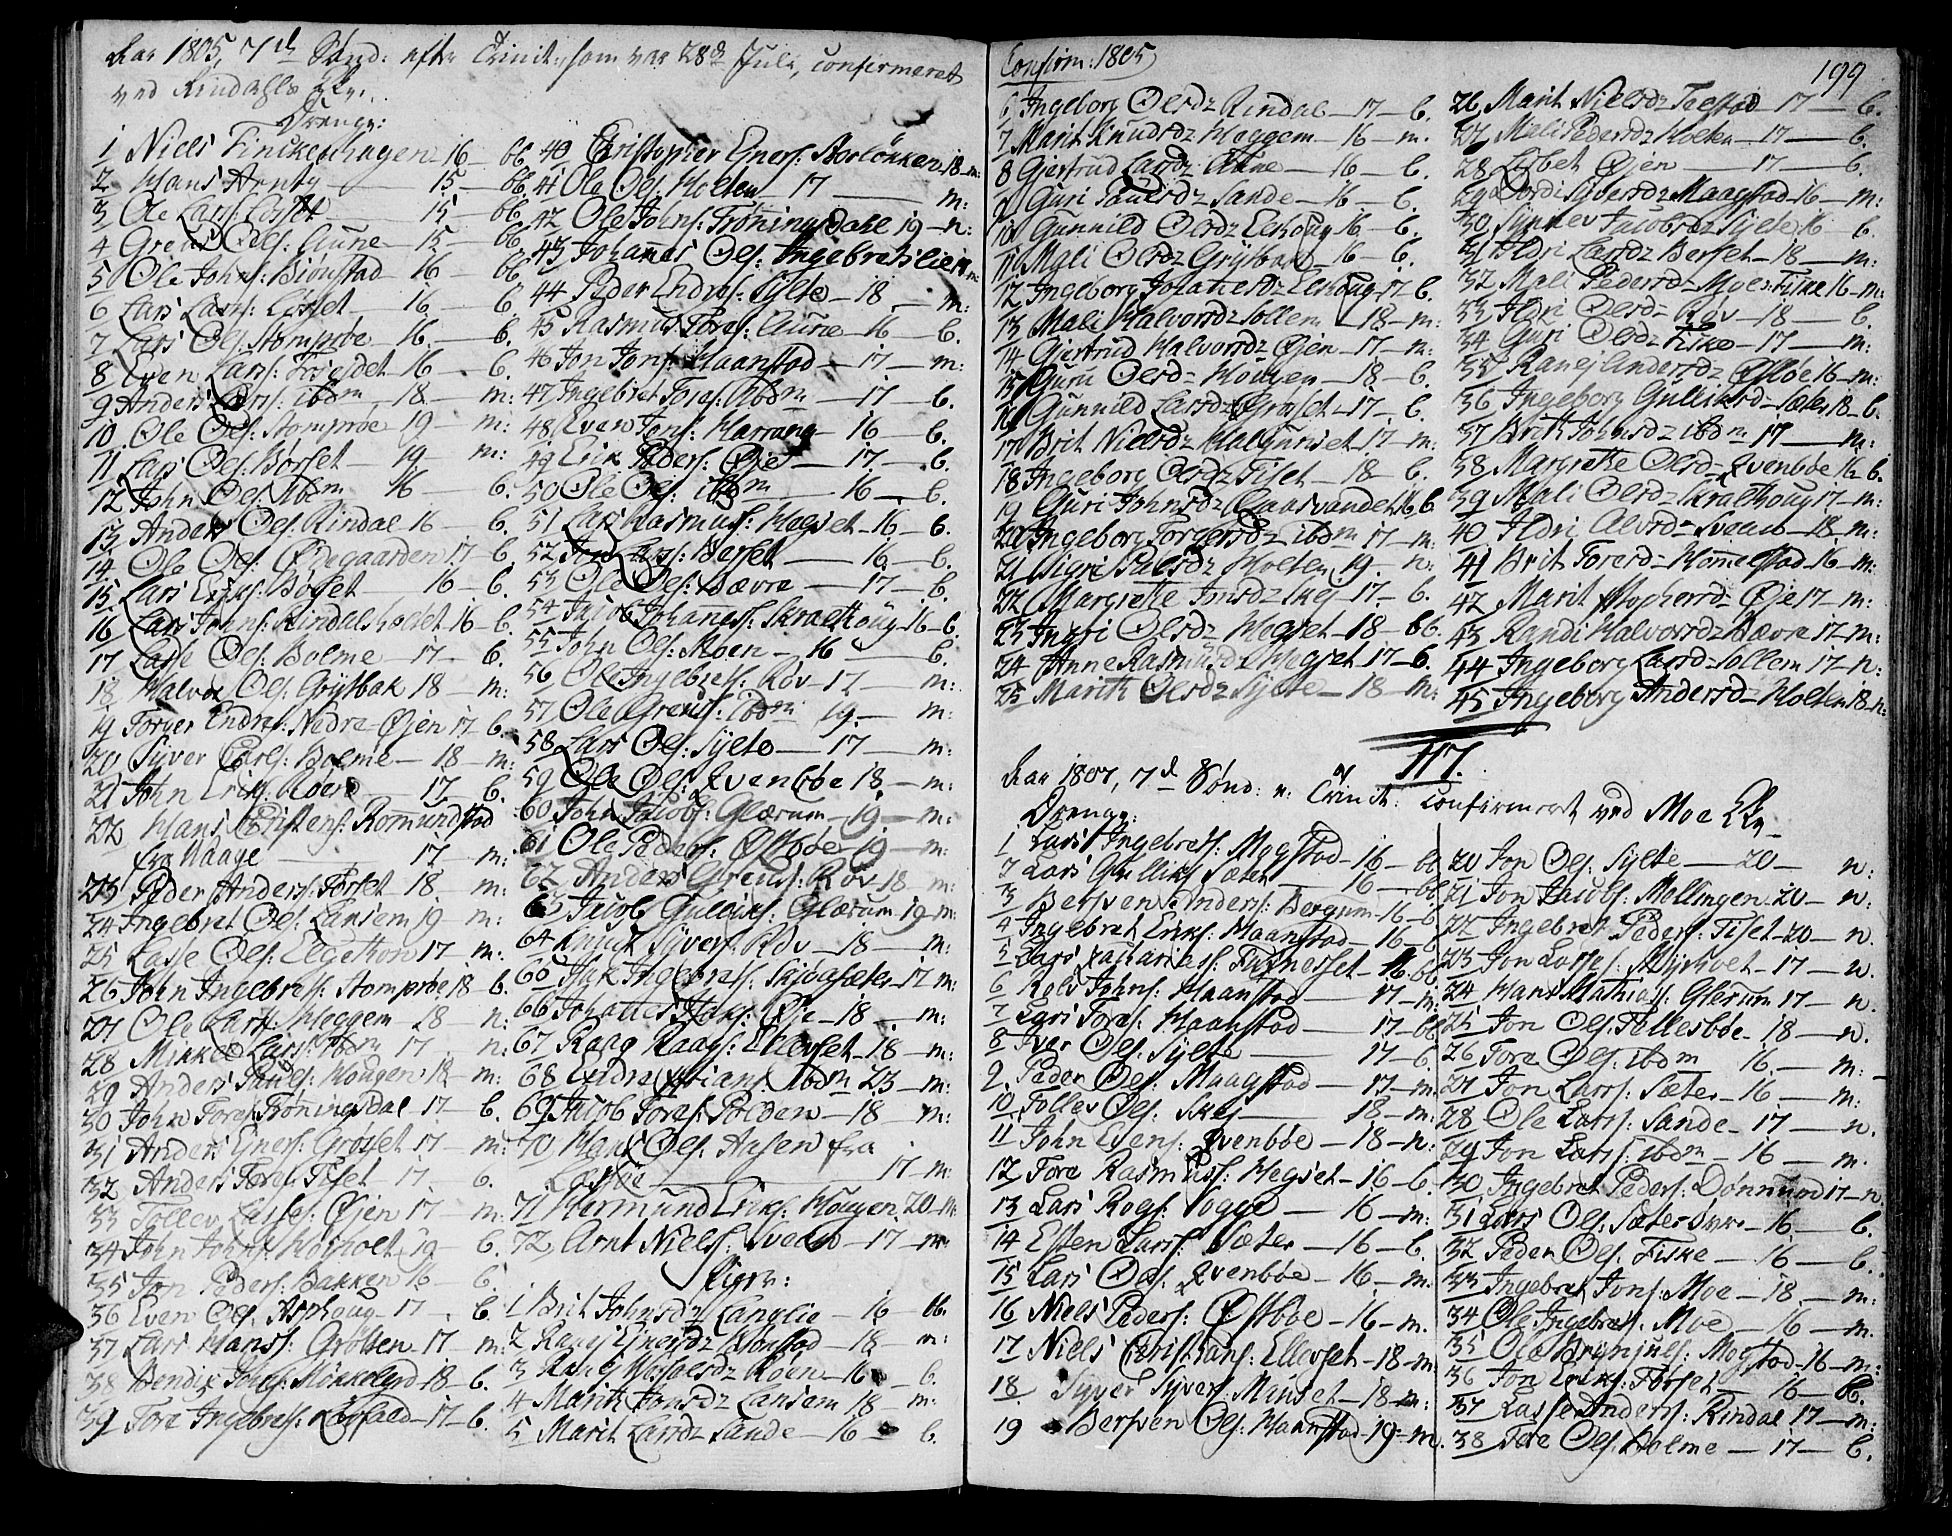 Aar 1805, 7de Sønd: efter Trinit: som var 28de Julii, confirmeret
ved Rindahls Kk:
Drenge:
1 Niels Finckenhagen 16 - bb.
2 Hans Arntz - 15 - bb.
3 Ole Larss: Losset - 15 - bb.
4 Grens Ols: Aune - 15 - bb.
5 Ole Johns: Biønstad - 16 - bb
6 Lars Larss: Løsset - 16 - b.
7 Lars Ols: Stomprøe - 16 - b.
8 Even Larss: 16 - b.
9 Anders Larss: ibdm - 18 - m:
10 Ole Ols: Stomprøe 19 - m:
11 Lars Ols: Børset - 19 - m:
12 John Ols: Ibdm 16 - b.
13 Anders Ols: Rindal 16 - b.
14 Ole Ols: Ødegaarden 17 - b
15 Lars Eriks: Bøset - 16 - b.
16 Lars Johns: Rindalsholdet 16 - b.
17 Lasse Ols: Bolme - 17 - b.
18 Halvor Ols: Grytbak 18 - m:
19 Torger Endres: Nedre Øjen 17 - b.
20 Syver Carls: Bolme - 18 - m:
21 John Eriks: Røen - 17 - b.
22 Hans Christens: Romundstad
fra Haage - 17 - m:
23 Peder Anders: Torset 18 - m:
24 Ingebret Ols: Lansem 19 - m:
25 Lasse Ols: 17 - m:
26 John Ingebres: Stomprøe 18 - b.
27 Ole Larss: Heggem 18 - n:
28 Mikkel Larss: Ibdm 17 - n:
29 Anders Pauls: Hougen 18 - m:
30 John Tores: Trøningsdal 17 - b.
31 Anders Eners: Grøsset 17 - m:
32 Anders Tores: Tiset - 17 - b.
33 Tollev Lasses: Øjen 17 - m:
34 John Johns: 19 - b.
35 Jon Peders: Bakken 16 - b.
36 Even Ols: Asphoug - 17 - b.
37 Lars Hanss: Grøtten 17 - m:
38 Bendix Johns: 18 - b.
39 Tore Ingebres: Løfald - 17 - b.
40 Christopher Eners: Storløkken 18 - m:
41 Ole Ols: Holten 17 - m:
42 Ole Johns: Trøningsdahl 19 - n:
43 Johanes Ols: Ingebretslien
44 Peder Endres: Sylte - 18 - m:
45 Rasmus Tores: Aune - 16 - b.
46 Jon Jons: Haanstad - 17 - m:
47 Ingebret Tores: Ibdm - 17 - b.
48 Even Jons: Harrang - 16 - b.
49 Erik Peders: Øje - 17 - b.
50 Ole Ols: ibdm - 16 - b.
51 Lars Rasmus: Helset - 16 - b.
52 16 - b.
53 Ole Ols: Bævre - 17 - b.
54 Jacob Johanes: Kralthoug - 16 - b.
55 John Ols: Moen - 16 - b.
56 Ole Ingebres: Røv - 17 - m:
57 Ole Grens: Ibdm 19 - m:
58 Lars Ols: Sylte - 17 - m:
59 Ole Ols: Qvenbøe 18 - m:
60 John Jacobs: Glærum - 19 - m:
61 Ole Peders: Østbøe 19 - m:
62 Anders Grens: Røv 18 - m:
63 Jacob Gulliks: Glærum 19 - m:
64 Knud Syvers: Røv - 18 - m:
65 Isak Ingebres: 17 m:
66 Johanes Isaks: Øie - 18 - m:
67 Raag Raags: Ellevset - 18 - m:
68 Endre Ibdm 23 - m:
69 Jacob Tores: Polden - 18 - m:
70 Hans Ols: Aasen fra
17 - m:
71 Hermund Eriks: Hougen 20 - m:
72 Arnt Niels: Sveen - 17 - m:
Piger:
1 Brit Johnsdz Langlie - 16 - bb.
2 Ranej Enersdz 18 - m:
3 Røen - 16 - b.
4 Marith Jonsdz Lansem 18 - m:
5 Marit Larsdz Sande - 16 - b.
Confirm: 1805
199
6 Ingeborg Olsdz Rindal - 17 - b.
7 Marit Knudsdz Heggem - 16 - m.
8 Gjertrud Larsdz Aune - 16 - b.
9 Guri Paulsdz Sande - 16 - b.
10 Gunnild Olsdz Elshoug 16 - b.
11 Mali Olsdz Grytbak - 16 - b.
12 Ingeborg Johanesdz Elshoug - 17 - b.
13 Mali Halvorsdz Sollem - 18 - m:
14 Gjertrud Halvorsdz Øjen - 17 - m:
15 Guru Olsdz Hougen - 18 - b.
16 Gunnild Larsdz Grøset - 17 - b.
17 Brit Nielsdz Halgunset - 17 - m:
18 Ingeborg Olsdz Tiset - 18 - b.
19 Guri Johnsdz Claasvandet 16 b.
20 Ingeborg Torgersdz ibdm 17 - m:
21 Sigri Palsdz Holten 19 - n:
22 Margrette Jonsdz Skej 17 - b.
23 Ingri Olsdz Megset - 18 - bb.
24 Anne Rasmusdz Megset 17 - b.
25 Marith Olsdz Sylte - 18 - m:
26 Marit Nielsdz 17 - b.
27 Mali Pedersdz Holten - 17 - b.
28 Lisbet Øjen - 17 - b.
29 Syversdz Maagstad 16 - m:
30 Synnev Jacobsdz Sylte 16 - b.
31 Ildri Larsdz Berset - 18 - m:
32 Mali Pedersdz Moes Fiske 16 - m:
33 Ildri Olsdz Røv - 18 - b.
34 Guri Olsdz Fiske - 17 - m:
35 Ranej Andersdz Østbøe 16 - m:
36 Ingeborg Gulliksd Sæter 18 - b.
37 Brith Johnsdz ibdm 17 - m:
38 Margrette Olsd Qvenbøe 16 - b.
39 Mali Olsdz Kralthoug 17 - m:
40 Ildri Alvsdz Sveen - 18 - m:
41 Brit Toresdz Homelstad 16 - m:
42 Marit Stophersdz Øje 17 - m:
43 Randi Halvorsdz Bævre 17 - m:
44 Ingeborg Larsdz Sollem 17 - n:
45 Ingeborg Andersdz Holten 18 - n:
117.
Aar 1807, 7de Sønd: e: Trinit: confirmeret ved Moe Kk
Drenge:
1 Lars Ingebres: Mogstad - 16 - bb
2 Lars Gulliks: Sæter - 16 - bb
3 Bersven Anders: Bergum - 16 - b
4 Ingebret Eriks: Haanstad - 16 - b
5 Lars Zacharies: 16 - bb
6 Rolv Johns: Haanstad - 17 - m:
7 Lars Tores: Haanstad - 17 - bb
8 Iver Ols: Sylte - 17 - b
9 Peder Ols: Maagstad - 17 - m
10 Tollev Ols: Skej - 18 - m:
11 John Estens: Qvenbøe - 18 - n:
12 Tore Rasmus: Megset - 16 - b.
13 Lars Rogs: Vogge - 16 - m:
14 Esten Larss: Sæter - 16 - b.
15 Lars Ols: Qvenbøe - 16 - m:
16 Niels Peders: Østbøe - 16 - m.
17 Niels Christians: Ellevset - 18 - m
18 Syver Syvers: Mauset - 18 - m:
19 Bersven Ols: Haanstad - 19 - m.
20 Jon Ols: Sylte - 20 - n:
21 Jon Jacobs: Mellingen 20 - n.
22 Ingebret Peders: Tiset - 20 - n.
23 Jon Lasses: 17 - n.
24 Hans Mathias: Glerum 17 - n.
25 Jon Ols: Follesbøe - 18 - n.
26 Tore Ols: ibdm 16 - m:
27 Jon Larss: Sæter - 16 - m:
28 Ole Larss: Sande - 17 - n.
29 Jon Larss: ibdm - 16 - m.
30 Ingebret Peders: Dønnum 17 - n
31 Lars Ols: Sæter øvre - 16 - b.
32 Peder Ols: Fiske - 16 - b.
33 Ingebret Jons: Moe - 18 - m:
34 Ole Ingebres: Moe - 16 - m.
35 Ole Brynjuls: Mogstad - 16 - m:
36 Jon Eriks: Torset - 16 - b.
37 Lasse Anders: Rindal 17 - m:
38 Tore Ols: Bolme - 17 - b.